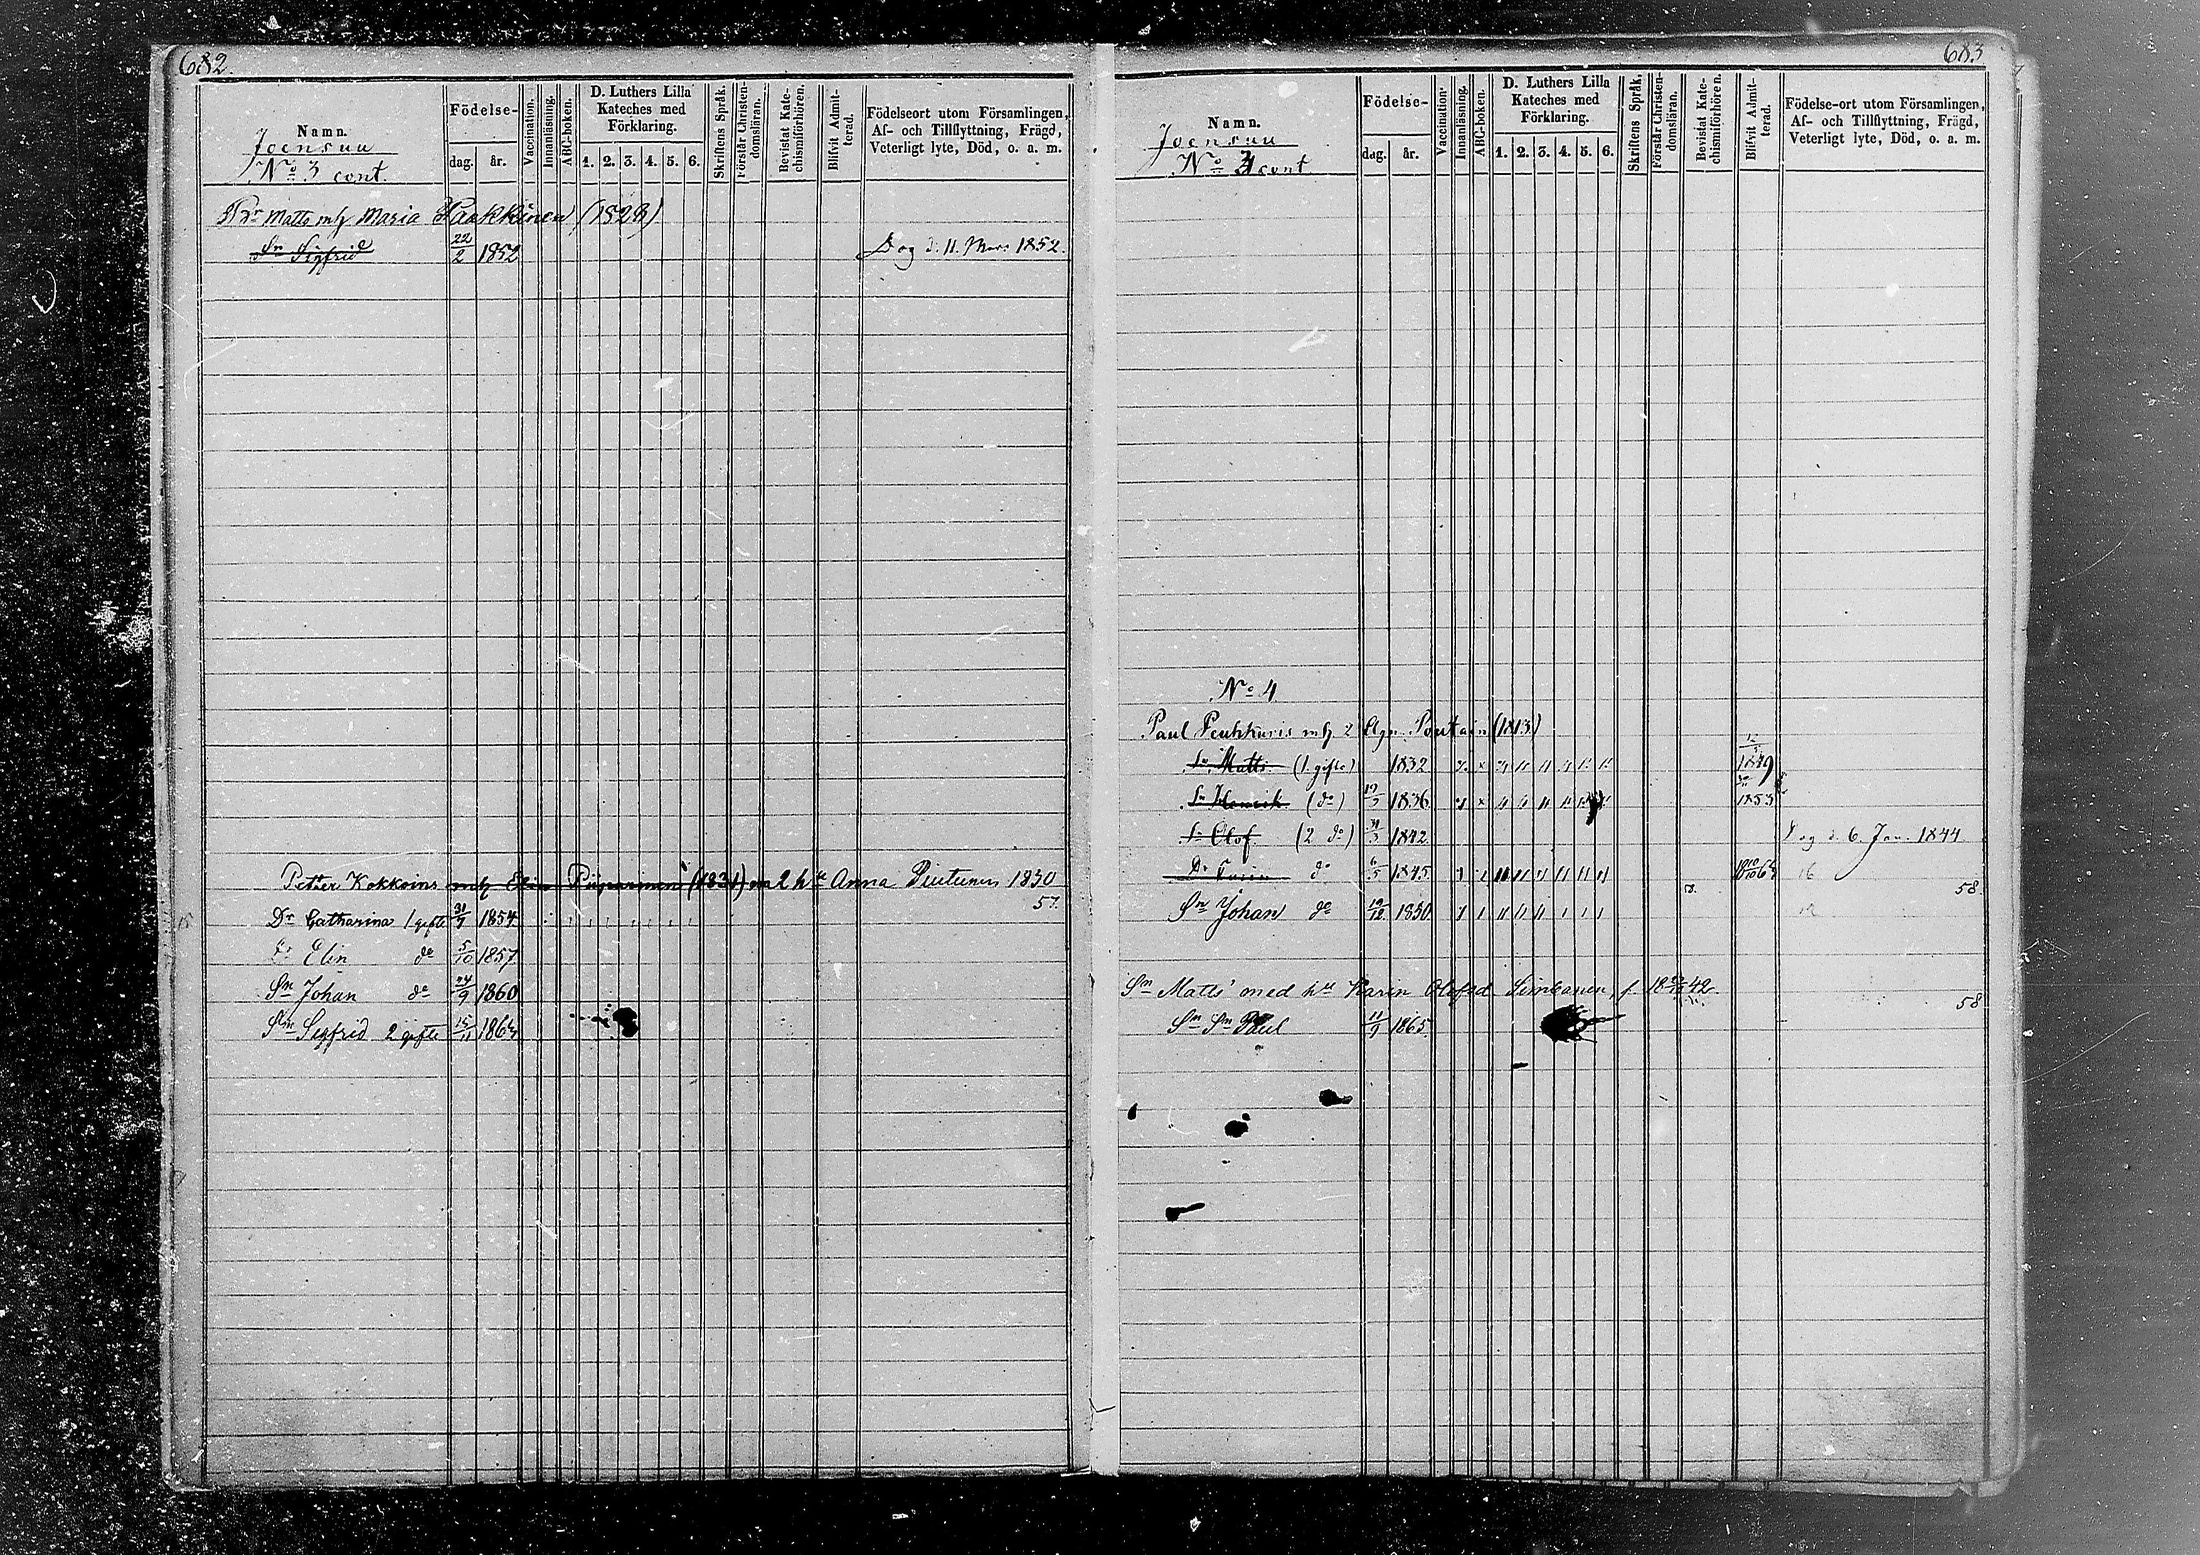 682.
Namn.
Joensuu
No 3 cont.
Födelse-
dag. år.
Vaccination.
Innanläsning.
ABC-boken.
D. Luthers Lilla
Kateches med
Förklaring.
1. 2. 3. 4. 5. 6.
Skriftens Språk.
Förstår Christen-
domsläran.
Bevistat Kate-
chismiförhören.
Blifvit Admit-
terad.
Födelseort utom Församlingen,
Af- och Tillflyttning, Frägd,
Veterligt lyte, Död, o. a. m.
Br Matts mh Maria Haakkinen (1828)
Sn Sigfrid 22/2 1852 Dog d. 11. Mars 1852.
Petter Kokkoins mh Elin (1831) m 2 hu Anna 1830
57.
Dr Catharina 1 gifte 31/7 1854
Dr Elin do 5/10 1857
Sn Johan do 24/9 1860
Sn Sigfrid 2 gifte 15/11
683
Namn.
Joensuu
No 3 cont
Födelse-
dag. år.
Vaccination.
Innanläsning.
ABC-boken.
D. Luthers Lilla
Kateches med
Förklaring.
1. 2. 3. 4. 5. 6.
Skriftens Språk.
Förstår Christen-
domsläran.
Bevistat Kate-
chismiförhören.
Blifvit Admit-
terad.
Födelse-ort utom Församlingen,
Af- och Tillflyttning, Frägd,
Veterligt lyte, Död, o. a. m.
No 4
Paul Peuhkuris mh 2 Agn. Poutain (1813)
Sn Matts (1 gifte) 1832 1849
Sn Henrik (do) 1836 1853
Sn Olof (2 do) 31/3 1842 Dog d. 6. Jan. 1844
Dr do 6/5 1845
58
Sn Johan do 19/12 1850
Sn Matts med hu Karin Olofsd
58
Sn Sn Paul 11/9 1865